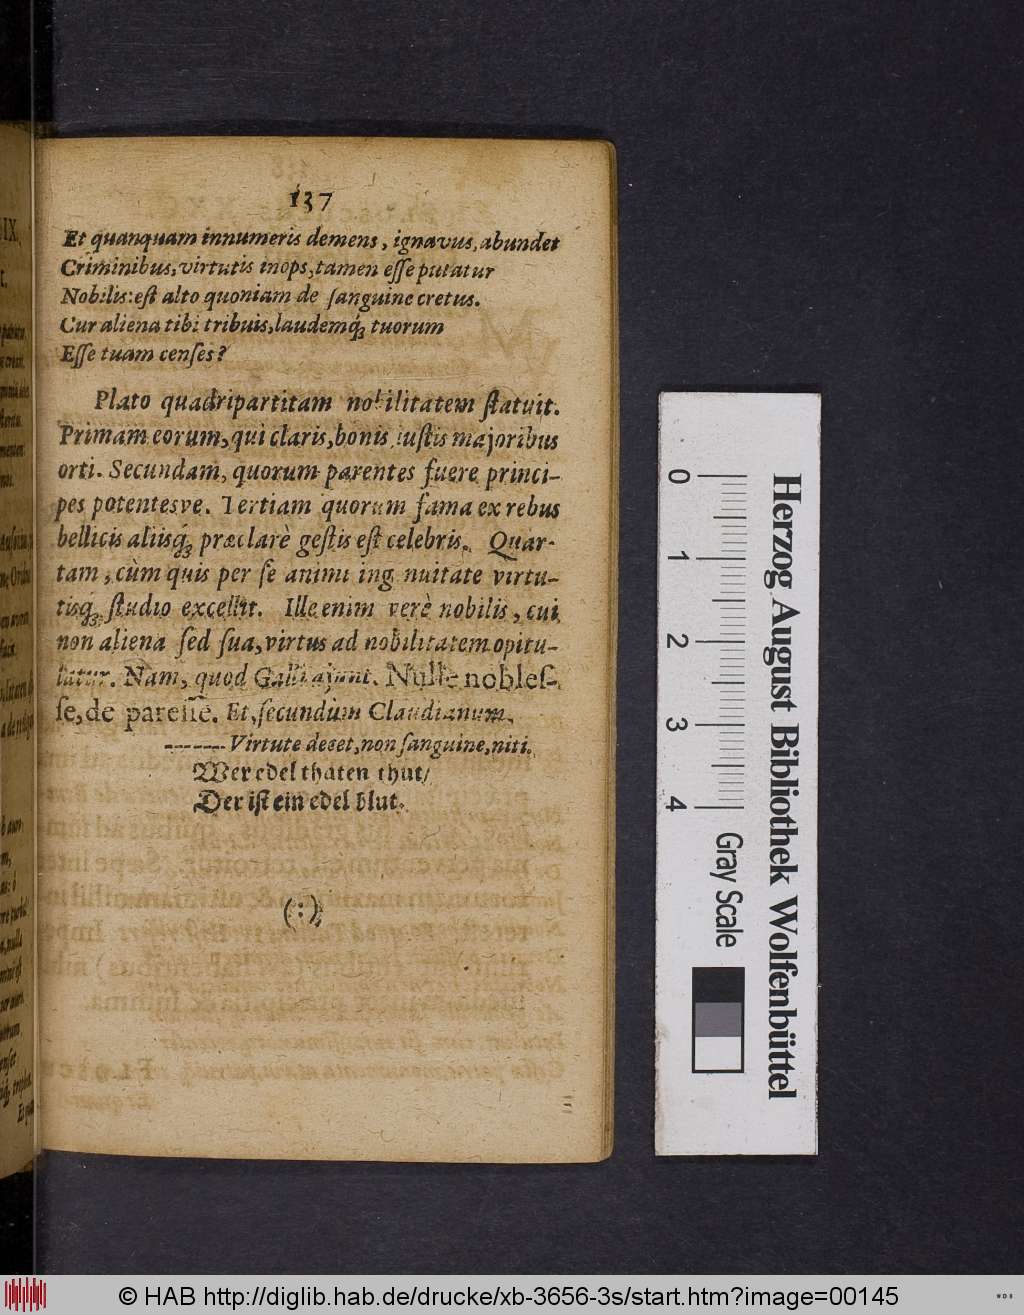 137
Et quanquam innumeris demens, ignavus, abundet
Criminibus, virtutis inops, tamen eſſe putatur
Nobilis: eſt alto quoniam de ſanguine cretus.
Cur aliena tibi tribuis, laudemq́ꝫ tuorum
Eſſe tuam cenſes?
Plato quadripartitam nobilitatem ſtatuit.
Primam eorum, qui claris, bonis iuſtis majoribus
orti. Secundam, quorum parentes fuere princi-
pes potentesve. Tertiam quorum fama ex rebus
bellicis aliisq́ꝫ præclarè geſtis eſt celebris. Quar-
tam, cùm quis per ſe animi ingnuitate virtu-
tisq́ꝫ ſtudio excellit. Ille enim verè nobilis, cui
non aliena ſed ſua, virtus ad nobilitatem opitu-
latur. Nam, quod Galli ajunt. Nulle nobleſ-
ſe, de pareſſe. Et, ſecundùm Claudianum,
------- Virtute decet, non ſanguine, niti.
Wer edel thaten thut/
Der iſt ein edel blut.
(:)
Herzog August Bibliothek Wolfenbüttel
0 1 2 3 4
Gray Scale
© HAB http://diglib.hab.de/drucke/xb-3656-3s/start.htm?image=00145